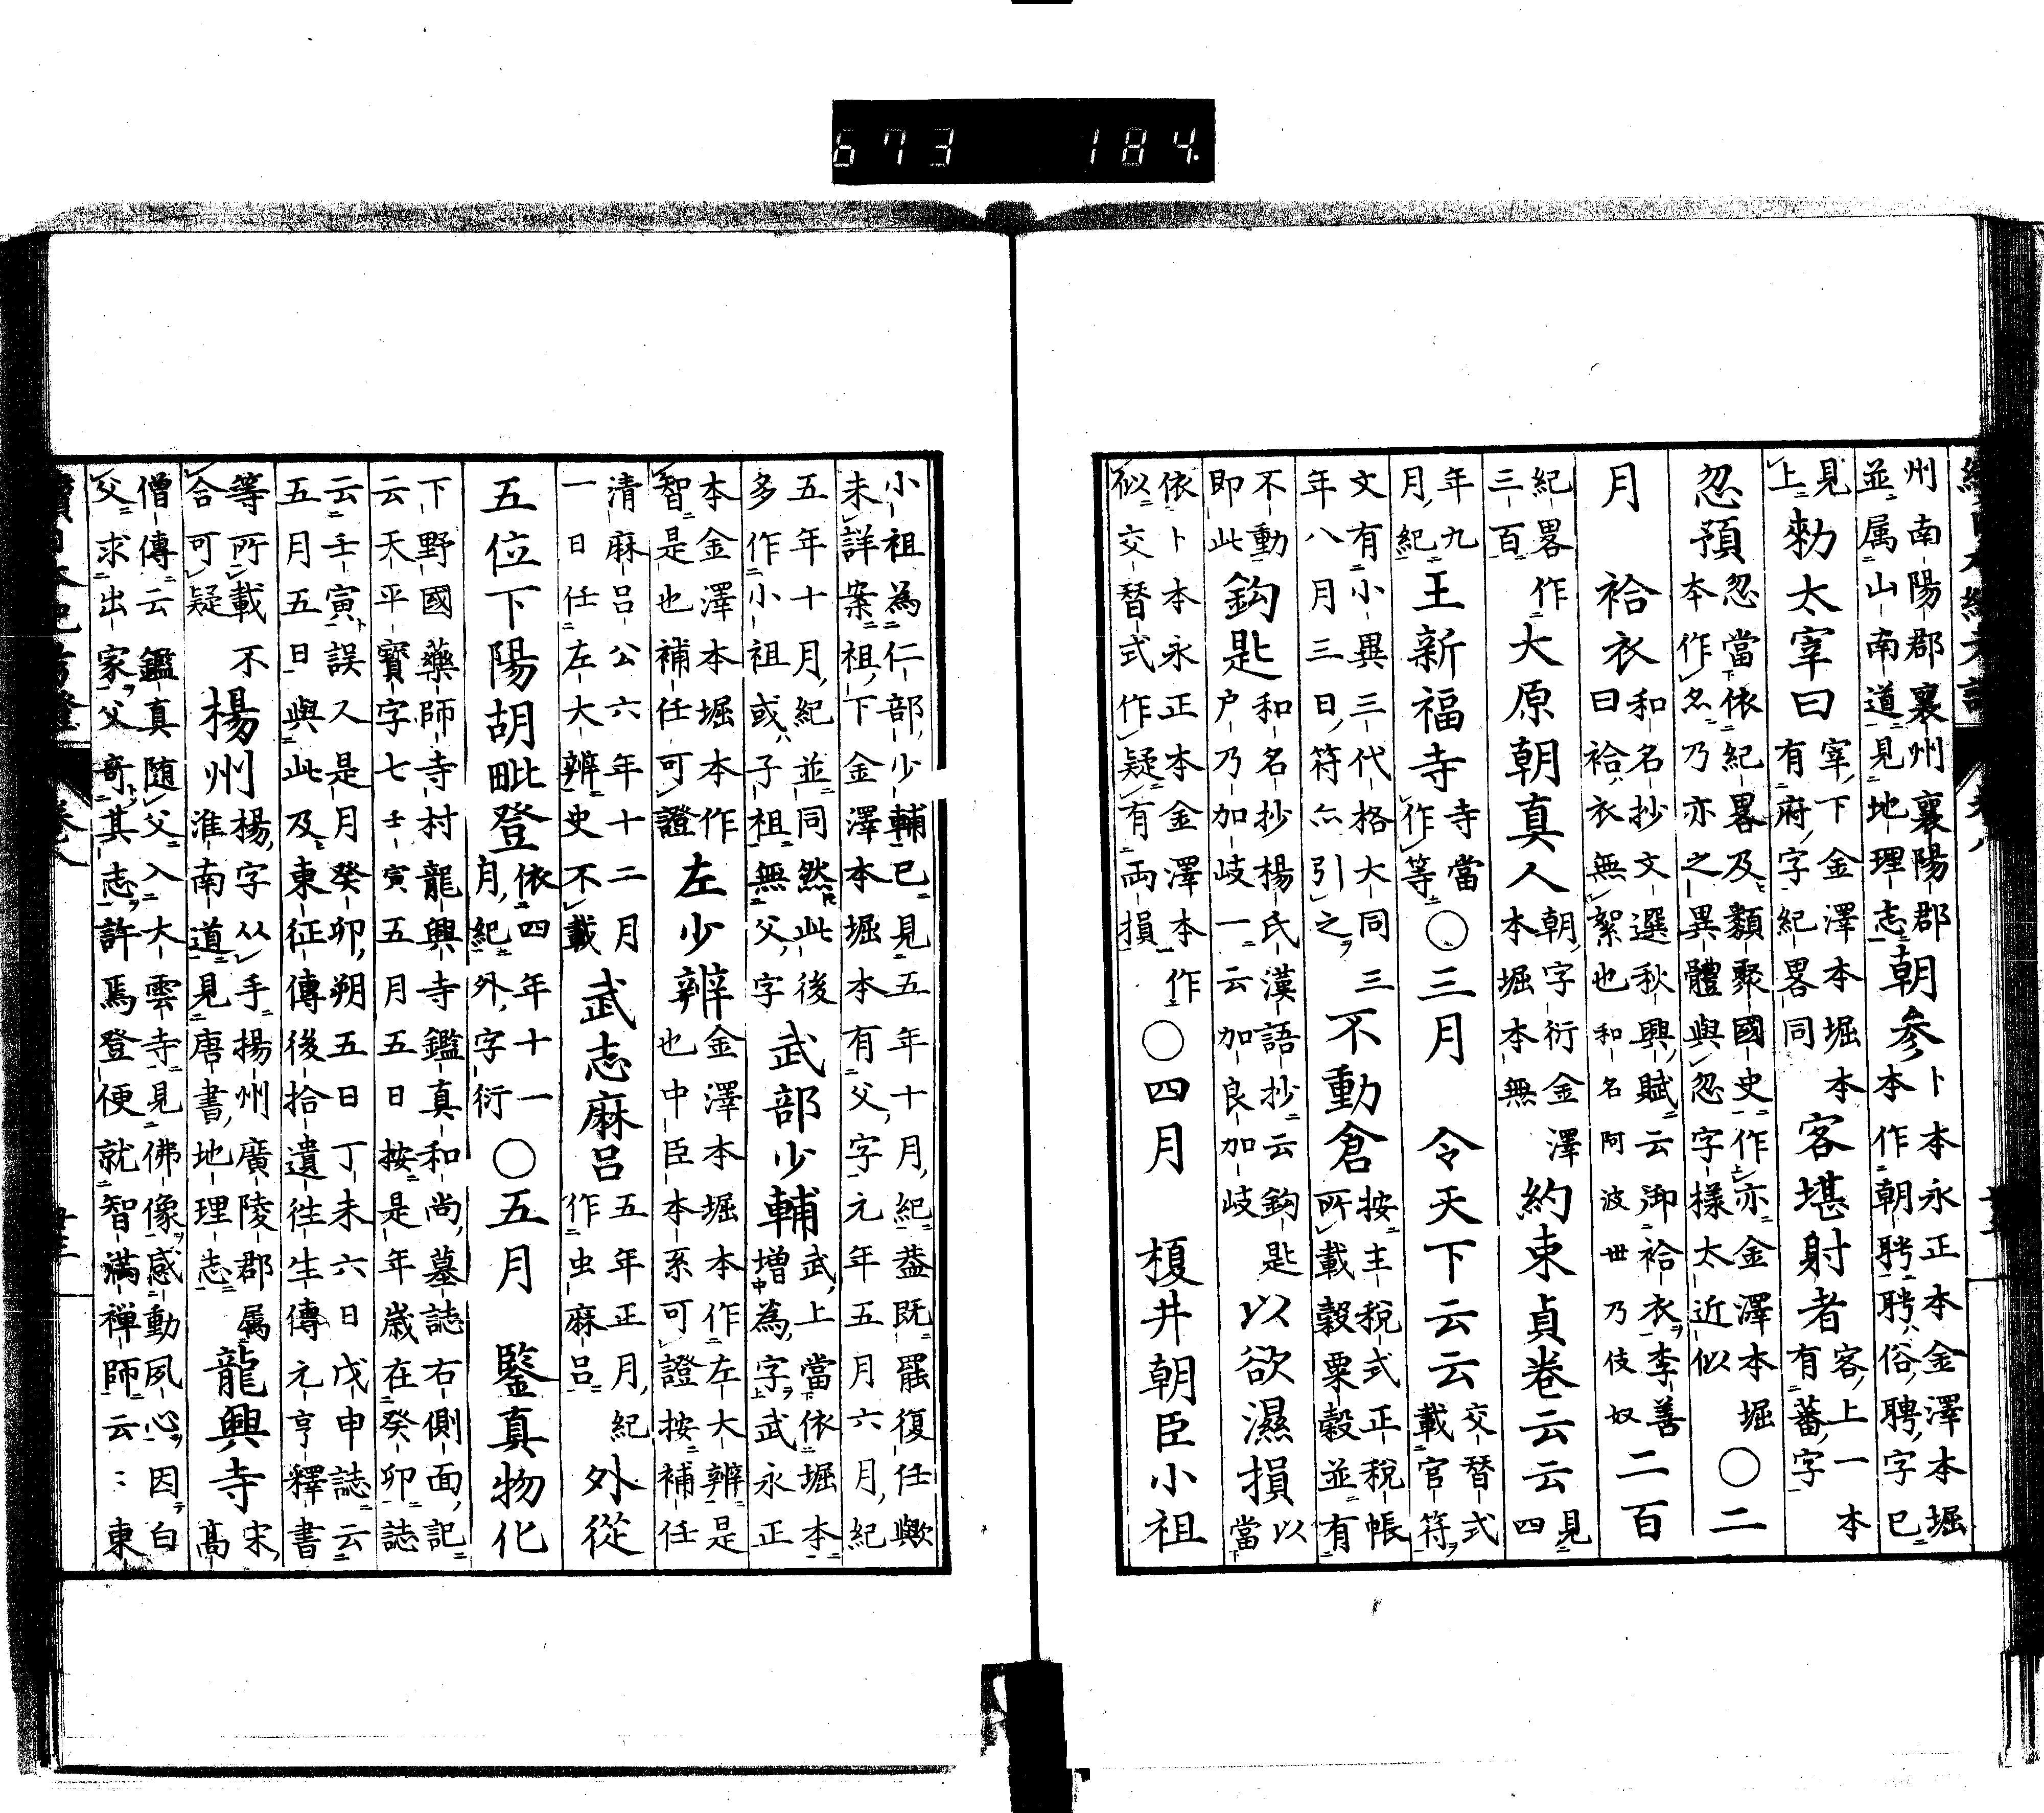 673 184.
州南陽郡襄州襄陽郡
並属山南道見地理志
朝参
卜本永正本金澤本堀
本作朝聘聘俗聘字已
見
上
勑太宰曰
宰下金澤本堀本
有府字紀畧同
客堪射者
客上一本
有蕃字
忽預
忽當依紀畧及類聚國史作亦金澤本堀
本作名乃亦之異體與忽字樣太近似
〇二
月 袷衣
和名抄文選秋興賦云御袷衣李善
曰袷衣無絮也和名阿波世乃伎奴
二百
紀畧作
三百
大原朝真人
朝字衍金澤
本堀本無
約束貞卷云云
見
四
年九
月紀
王新福寺
寺當
作等
〇三月 令天下云云
交替式
載官符
文有小異三代格大同三
年八月三日符亦引之
不動倉
按主税式正税帳
所載穀粟穀並有
不動
即此
鈎匙
和名抄楊氏漢語抄云鈎匙
户乃加岐一云加良加岐
以欲濕損
以
當
依卜本永正本金澤本作
似交替式作疑有両損
〇四月 榎井朝臣小祖
小祖為仁部少輔已見五年十月紀蓋既罷復任歟
未詳案祖下金澤本堀本有父字元年五月六月紀
五年十月紀並同然此後
多作小祖或子祖無父字
武部少輔
武上當依堀本
増為字武永正
本金澤本堀本作
智是也補任可證
左少辨
金澤本堀本作左大辨是
也中臣本系可證按補任
清麻呂公六年十二月
一日任左大辨史不載
武志麻呂
五年正月紀
作虫麻呂
外從
五位下陽胡毗登
依四年十一
月紀外字衍
〇五月 鑒真物化
下野國藥師寺村龍興寺鑑真和尚墓誌右側面記
云天平寳字七壬寅五月五日按是年歳在癸卯誌
云壬寅誤又是月癸卯朔五日丁未六日戊申誌云
五月五日與此及東征傳後拾遺往生傳元亨釋書
等所載不
合可疑
楊州
楊字从手揚州廣陵郡属
淮南道見唐書地理志
龍興寺
宋
高
僧傳云鑑真随父入大雲寺見佛像感動夙心因白
父求出家父奇其志許焉登便就智満禅師云〻東